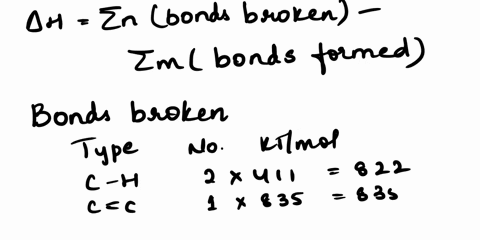 ΔH = Σn (bonds broken) –
Σm ( bonds formed)
Bonds broken
Type No. KJ/mol
C-H 2 × 411 = 822
C=C 1 × 835 = 835